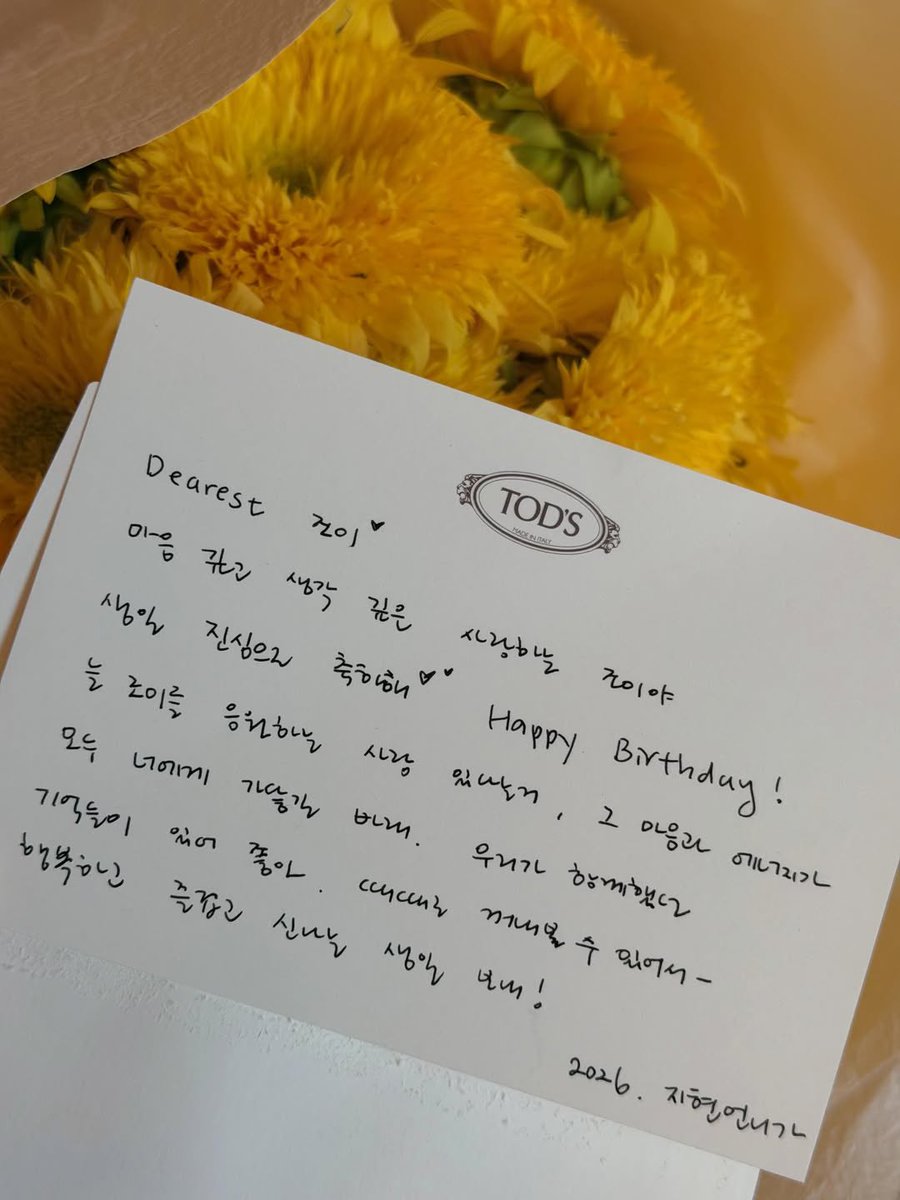 Dearest 조이♥
TOD'S
MADE IN ITALY
마음 곱고 생각 깊은 사랑하는 조이야
생일 진심으로 축하해♥♥ Happy Birthday!
늘 조이를 응원하는 사랑 있다는거, 그 마음과 에너지가
모두 너에게 가닿길 바래. 우리가 함께했던
기억들이 있어 좋아. 때때로 꺼내볼 수 있어서-
행복하고 즐겁고 신나는 생일 보내!
2026. 지현언니가